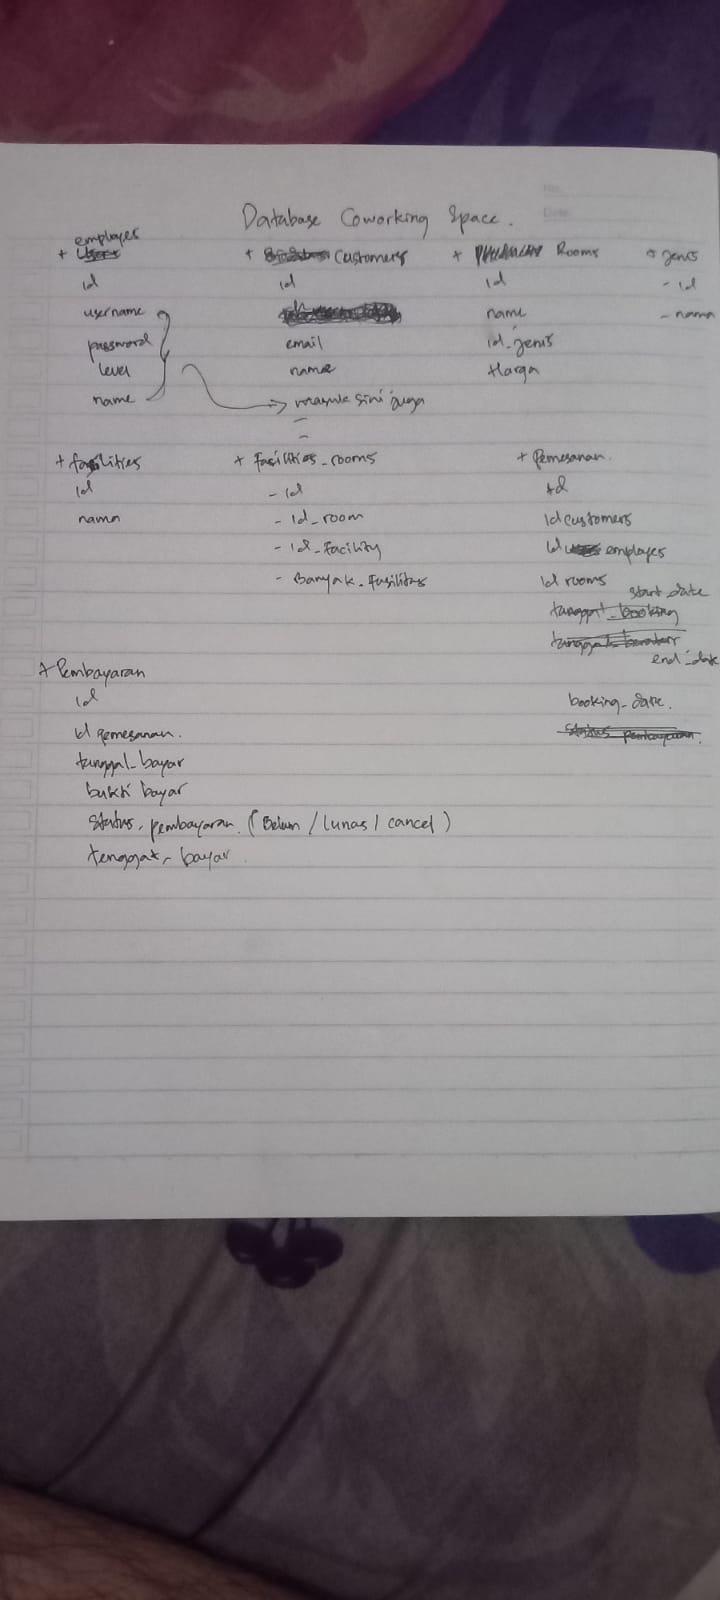 Database Coworking Space.
employes
+ Users
id
username
password
level
name
+ Customers
id
email
name
masuk sini juga
-
-
+ Rooms
id
name
id_jenis
Harga
+ jenis
- id
- nama
+ fasilities
id
nama
+ Fasilities_rooms
- id
- id_room
- id_Facility
- Banyak_Fasilitas
+ Pemesanan.
id
Id customers
Id employes
Id rooms
start_date
tanggal_booking
end_date
booking_date.
status pembayaran.
+ Pembayaran
id
Id pemesanan.
tanggal_bayar
bukti bayar
status_pembayaran. (Belum / Lunas / cancel)
tenggat_bayar.
No.
Date